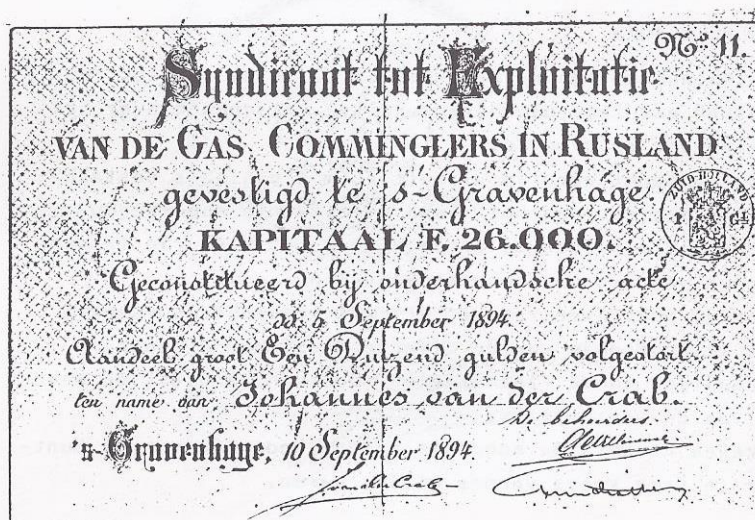 No 11.
Syndicaat tot Exploitatie
VAN DE GAS COMMINGLERS IN RUSLAND
gevestigd te 's-Gravenhage.
KAPITAAL F. 26.000.
ZUID-HOLLAND
Geconstitueerd bij onderhandsche acte
dd 5 September 1894.
Aandeel groot Een Duizend gulden volgestort
ten name van Johannes van der Crab.
De beheerders.
's-Gravenhage, 10 September 1894.